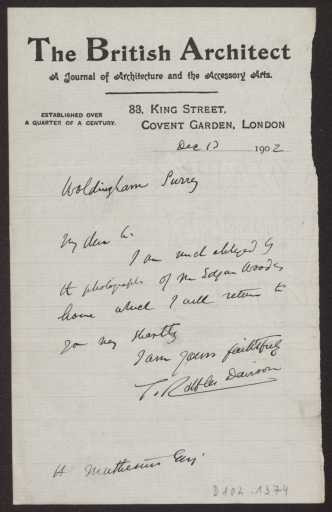 The British Architect
A Journal of Architecture and the Accessory Arts.
ESTABLISHED OVER
A QUARTER OF A CENTURY.
83, KING STREET,
COVENT GARDEN, LONDON
Dec 1902
Woldingham Surrey
My dear Sir
I am much obliged by
the photographs of Mr Edgar Woods
house which I will return to
you very shortly
I am yours faithfully
T. Raffles Davison
H Mathesius Esq.
D102-1374